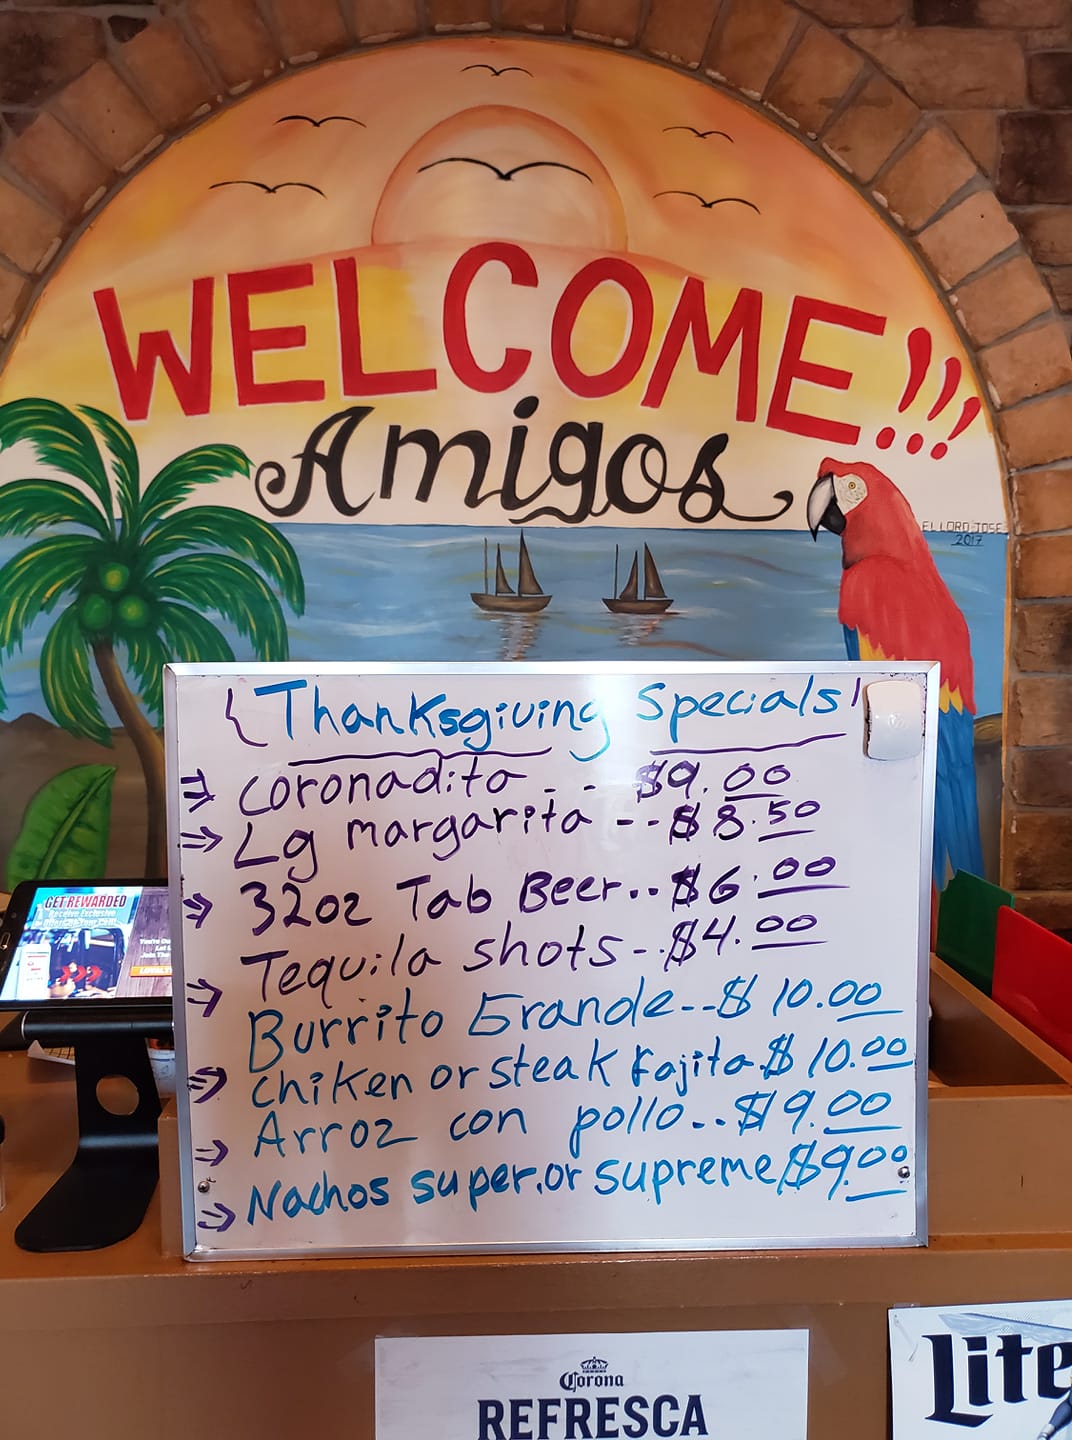 WELCOME!!!
Amigos
EL LORD JOSE
2017
{ Thanksgiving Specials!
⇒ coronadita - - $9.00
⇒ Lg margarita -- $8.50
⇒ 32oz Tab Beer.. $6.00
Tequila shots -.. $4.00
⇒ Burrito Grande -- $10.00
⇒ chiken or steak fajita $10.00
⇒ Arroz con pollo.. $9.00
⇒ Nachos super.or supreme $9.00
GET REWARDED
Receive Exclusive
LOYALT
Corona
REFRESCA
Lite